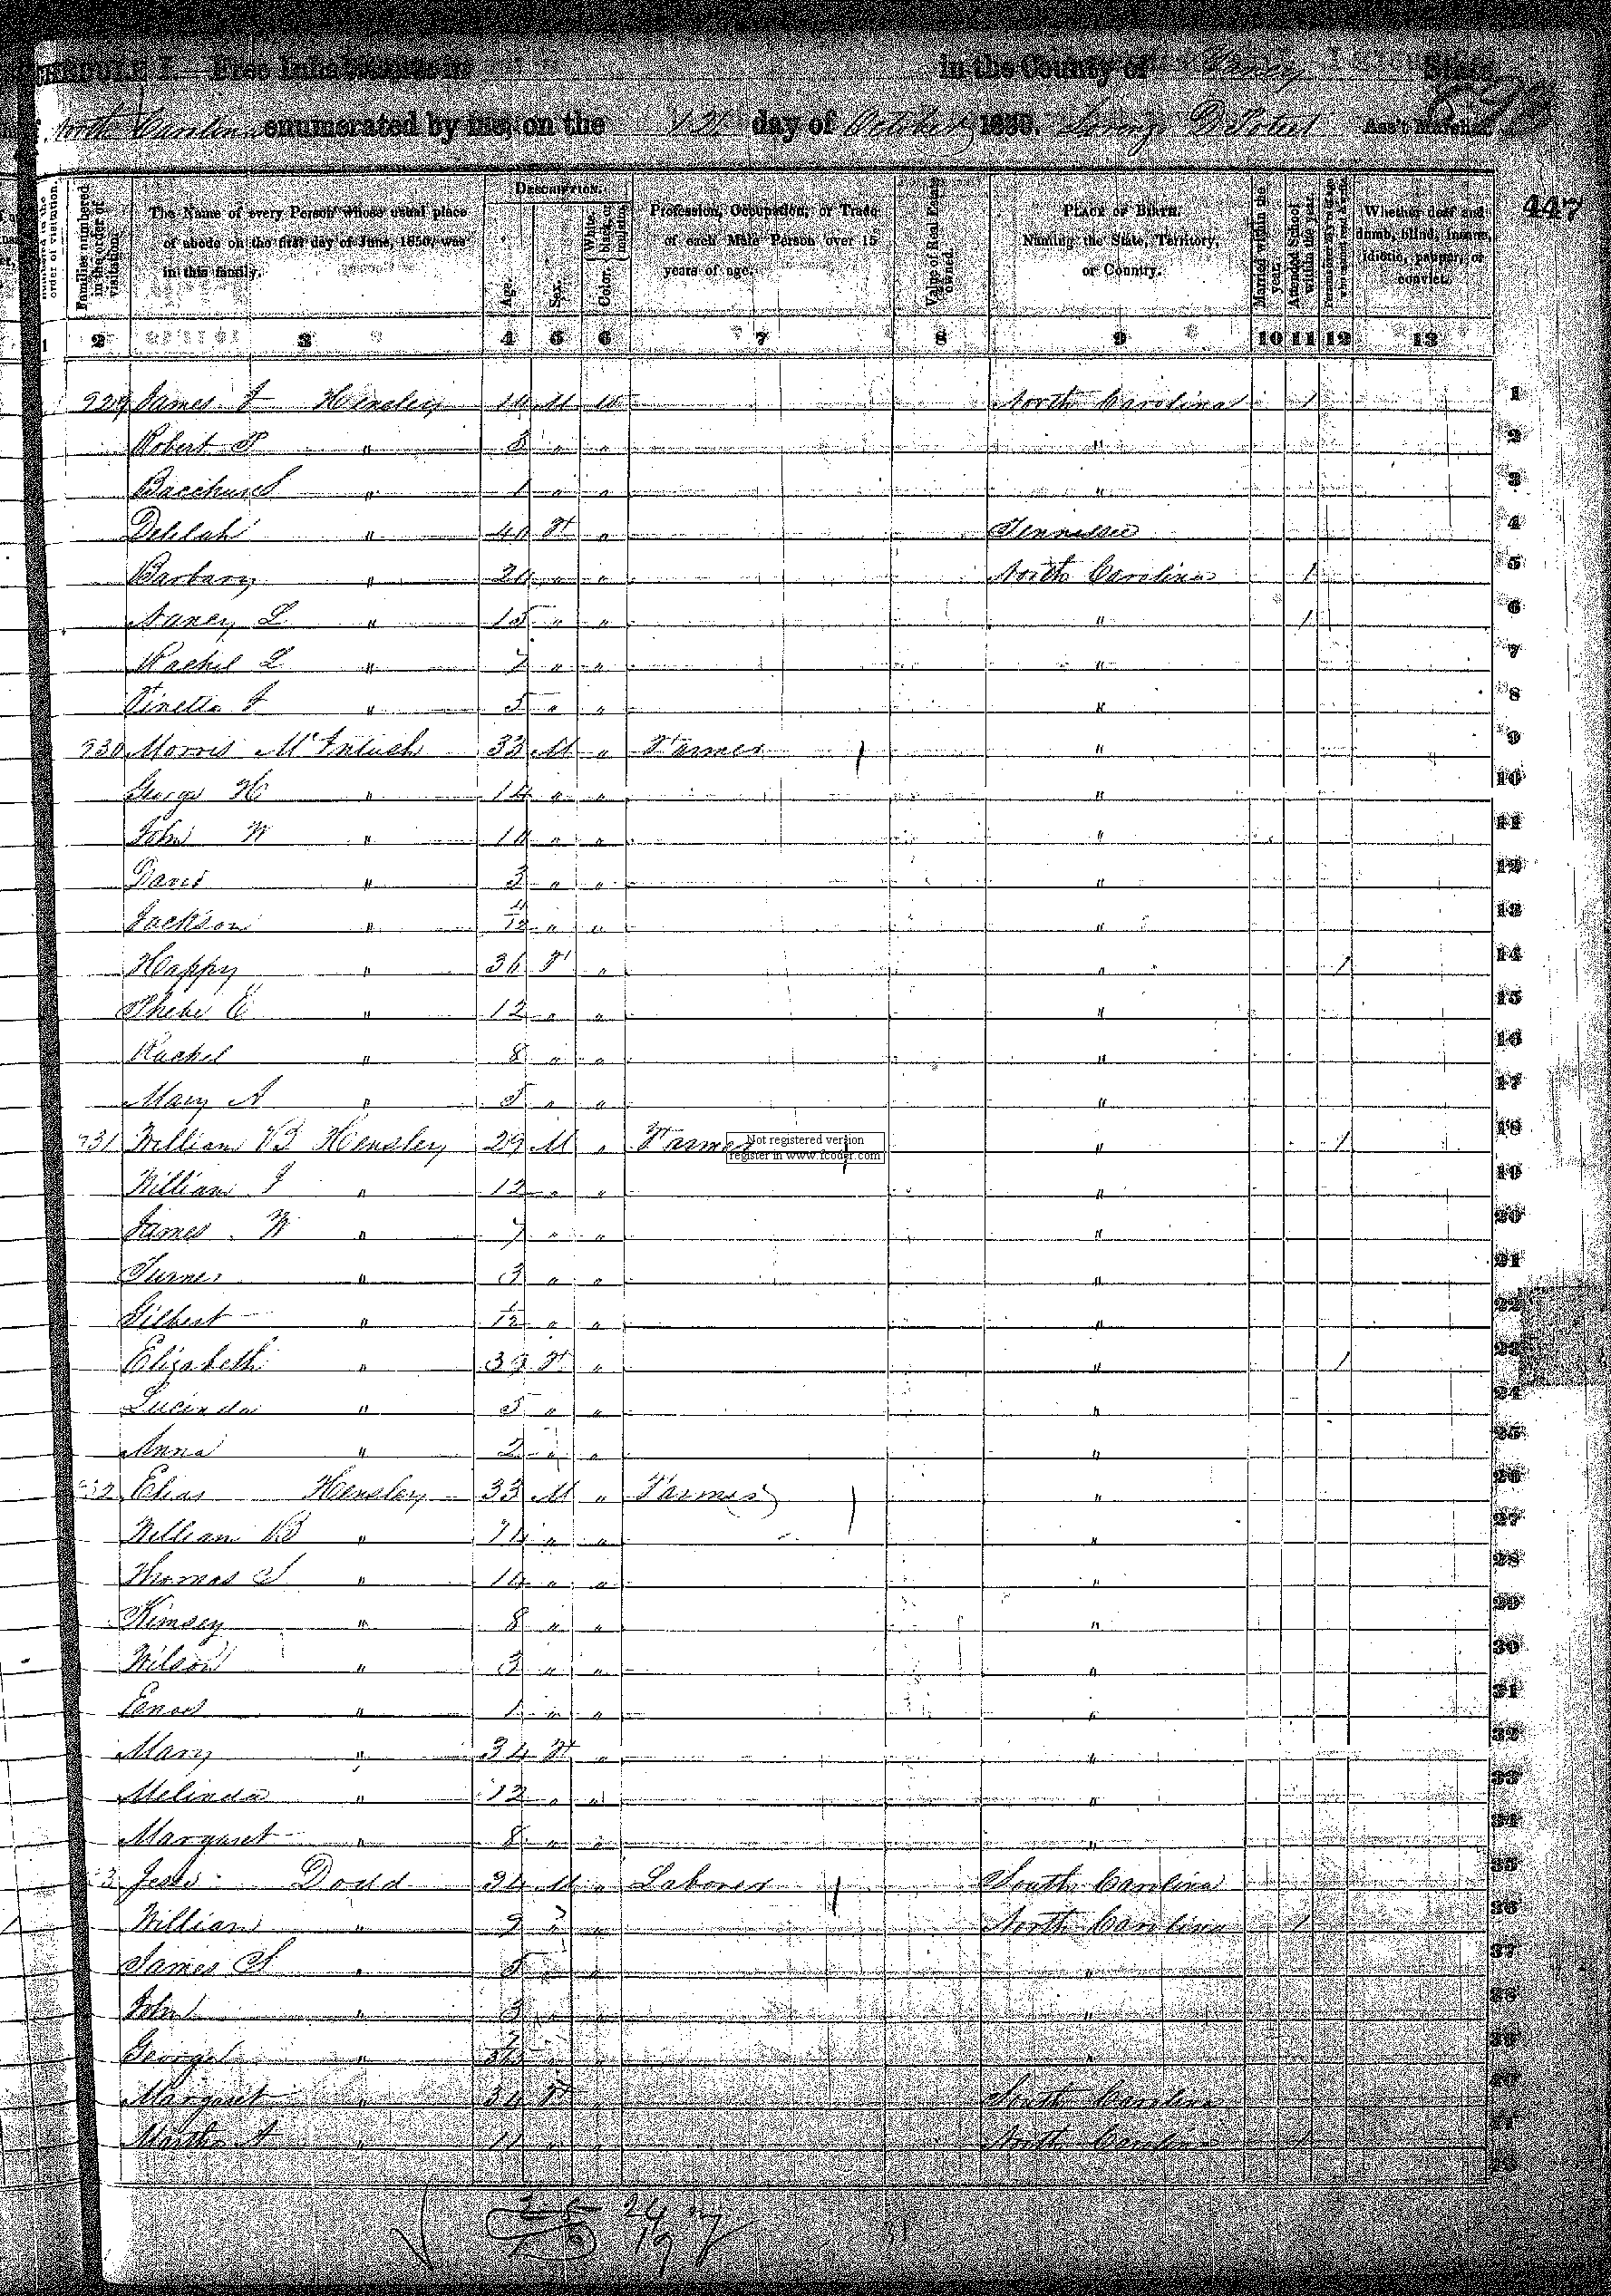 SCHEDULE I.—Free Inhabitants in in the County of Yancey State
North Carolina enumerated by me, on the 12 day of October 1850. Ass't Marshal.
447
Families numbered in the order of visitation.
The Name of every Person whose usual place of abode on the first day of June, 1850, was in this family.
DESCRIPTION.
Age.
Sex.
Color. White, black, or mulatto.
Profession, Occupation, or Trade of each Male Person over 15 years of age.
Value of Real Estate owned.
PLACE OF BIRTH. Naming the State, Territory, or Country.
Married within the year.
Attended School within the year.
Whether deaf and dumb, blind, insane, idiotic, pauper, or convict.
1 2 3 4 5 6 7 8 9 10 11 12 13
929 James Hensley 10 M W North Carolina 1 1
Robert P " " " " 2
" 1 " " " 3
Delilah " 40 F " Tennessee 4
Barbary " " " North Carolina 1 5
Nancy L " 15 " " " 1 6
Rachel L " 7 " " " 7
" 5 " " " 8
930 Morris McIntush 33 M " Farmer " 9
George H " 14 " " " 10
John W " 10 " " " 11
David " 3 " " " 12
Jackson " 4/12 " " " 13
Happy " 36 F " " 1 14
Phebe E " 12 " " " 15
Rachel " 8 " " " 16
Mary A " 5 " " " 17
931 William B Hensley 29 M " Farmer " 1 18
Not registered version
register in www.fcoder.com
William J " 12 " " " 19
James W " 7 " " " 20
Turner " 3 " " " 21
Gilbert " 1/12 " " " 22
Elizabeth " 39 F " " 1 23
Lucinda " 5 " " " 24
Anna " 2 " " " 25
932 Elias Hensley 33 M " Farmer " 26
William B " 14 " " " 27
Thomas S " 10 " " " 28
Kimsey " 8 " " " 29
Wilson " 3 " " " 30
Enos " 1 " " " 31
Mary " 34 F " " 32
Melinda " 12 " " " 33
Margaret " 8 " " " 34
Jesse Dodd 34 M " Laborer South Carolina 35
William " 9 " " North Carolina 1 36
James S " 5 " " " 37
John " 3 " " " 38
George " " " "
Margaret " 34 F " South Carolina
Martha A " 11 " " North Carolina 1
24 m
19 f